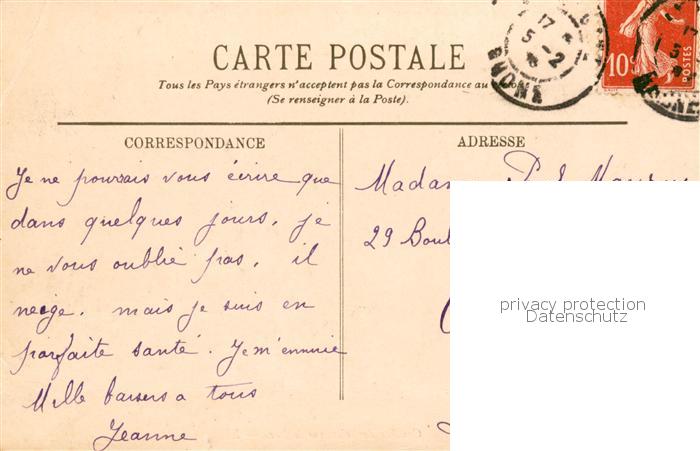 CARTE POSTALE
Tous les Pays étrangers n'acceptent pas la Correspondance au
(Se renseigner à la Poste).
CORRESPONDANCE
Je ne pourrais vous écrire que
dans quelques jours, je
ne vous oublie pas. il
neige. mais je suis en
parfaite santé. Je m'ennuie
Mille baisers a tous
Jeanne
ADRESSE
Madam
29 Boul
privacy protection
Datenschutz
17
5 - 2
RHONE
10
POSTES
RHONE